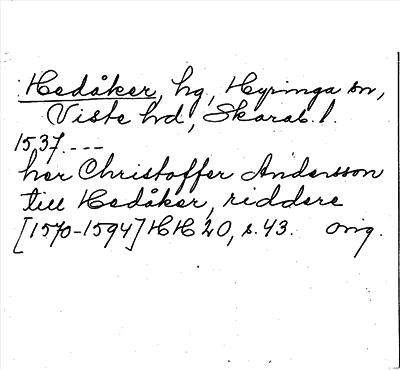 Hedåker, hg, Hyringa sn,
Viste hd, Skarab. l.
1537. ---
her Christoffer Andersson
till Hedåker, riddere
[1570-1594] HH 20, s. 43. orig.